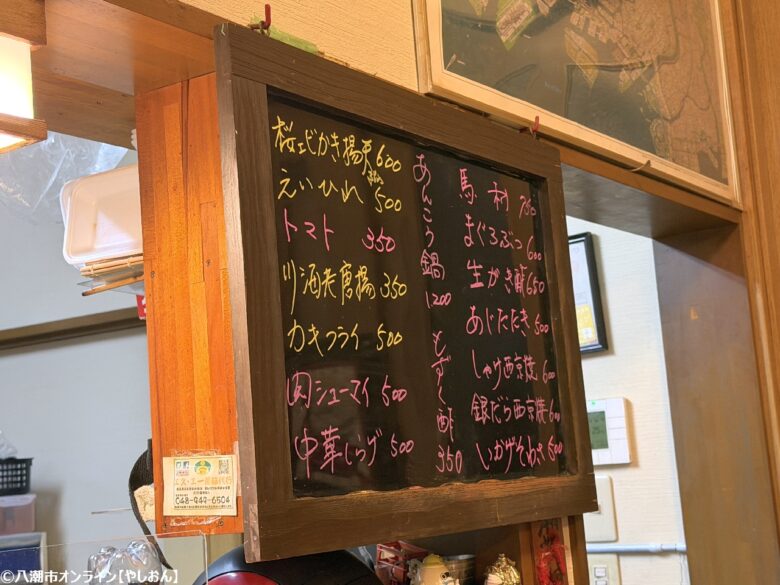 桜エビかき揚 600
えいひれ 500
トマト 350
川海老唐揚 350
カキフライ 500
肉シューマイ 500
中華くらげ 500
あんこう鍋 1200
もずく酢 350
馬刺 750
まぐろぶつ 600
生がき酢 650
あじたたき 500
しゃけ西京焼 600
銀だら西京焼 600
いかげそわさ 500
エス・エー運転代行
048-947-6504
©八潮市オンライン【やしおん】